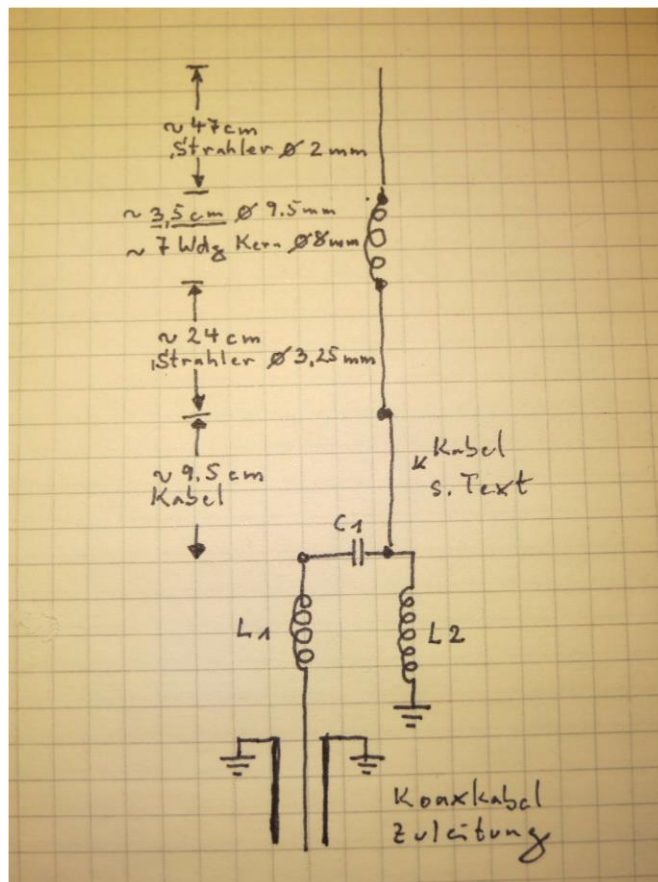 ~ 47 cm
Strahler Ø 2 mm
~ 3,5 cm Ø 9.5 mm
~ 7 Wdg Kern Ø 8 mm
~ 24 cm
Strahler Ø 3,25 mm
~ 9.5 cm
Kabel
Kabel
s. Text
C1
L1
L2
Koaxkabel
Zuleitung